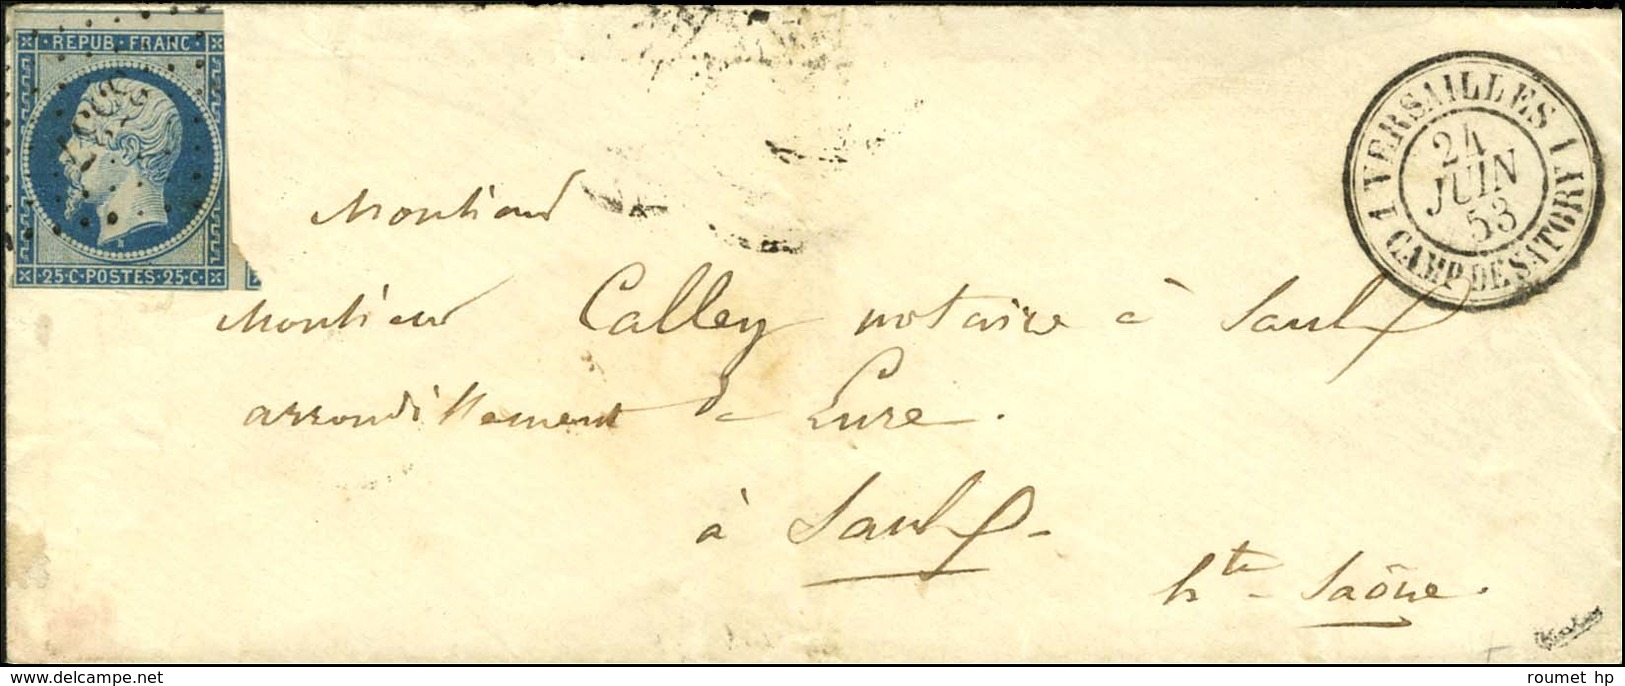 REPUB. FRANC.
25·C·POSTES·25·C·
VERSAILLES
24
JUIN
53
CAMP DE SATORY
Monsieur
Monsieur Calley notaire à Saulx
arrondissement de Lure.
à Saulx
hte - Saône.
www.delcampe.net
roumet hp